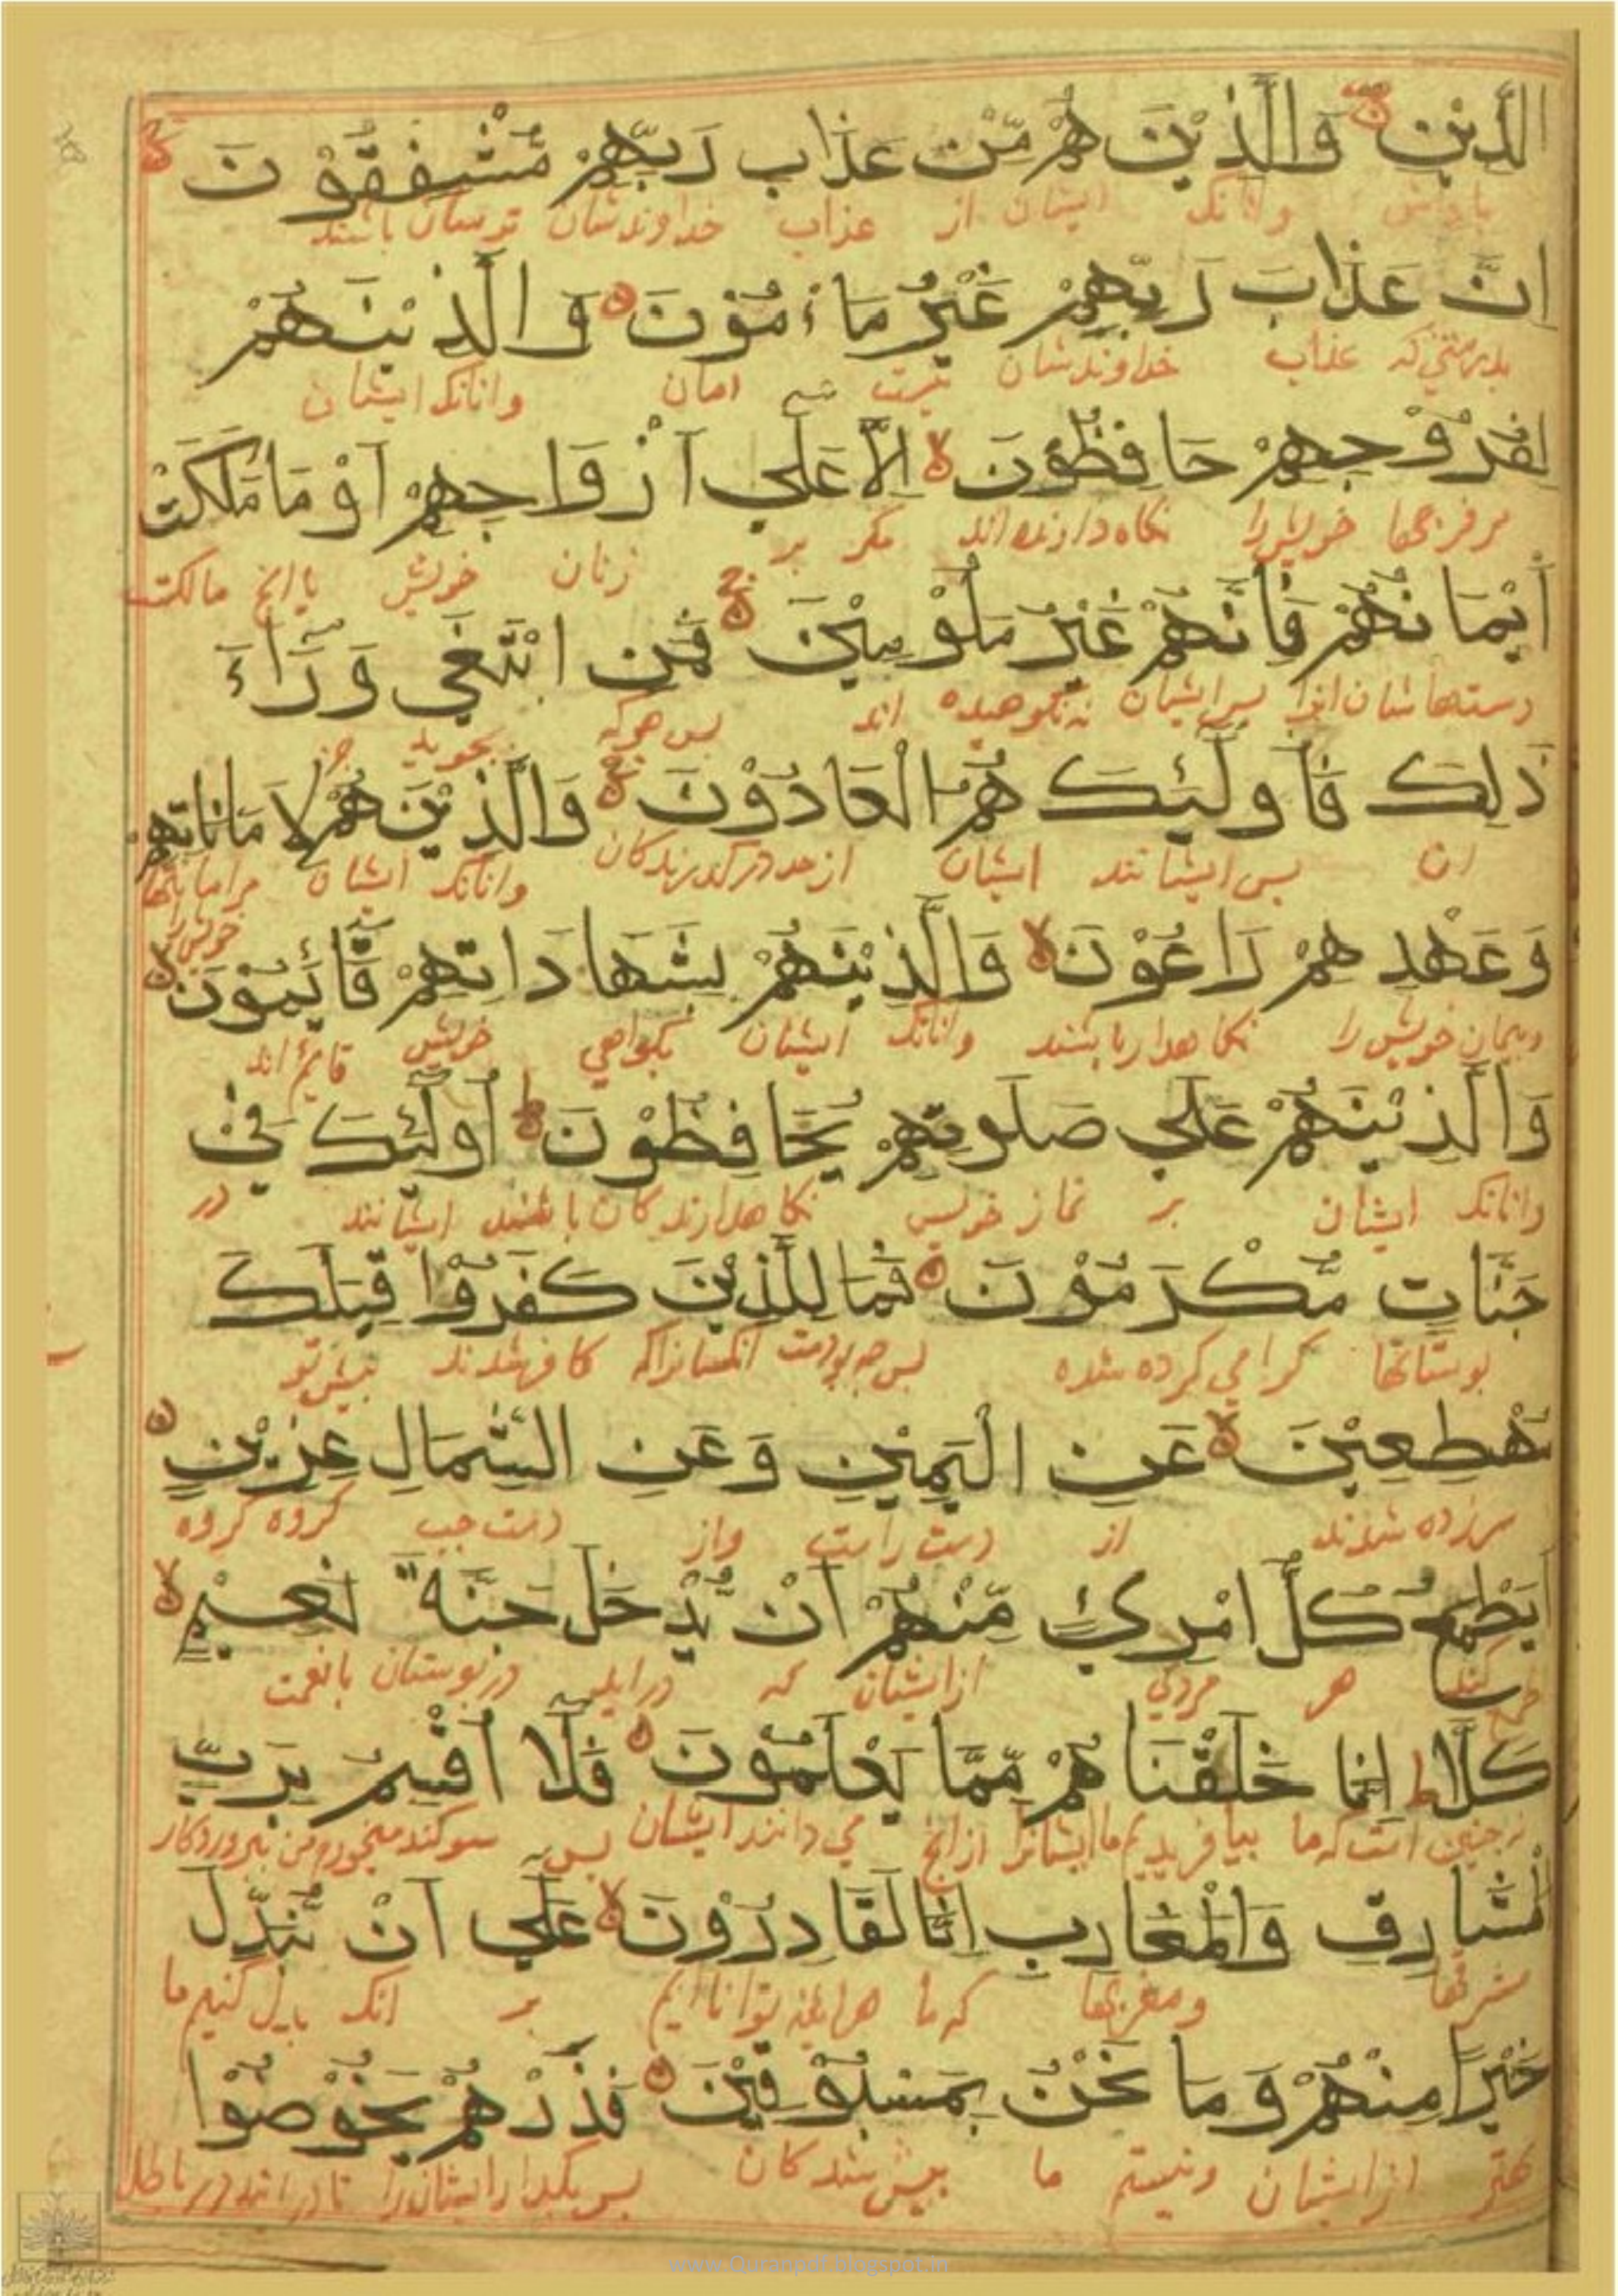 الدِّيْنِ وَالَّذِيْنَ هُمْ مِّنْ عَذَابِ رَبِّهِمْ مُّشْفِقُوْنَ
وانانک ایشان از عذاب خداوندشان ترسان باشند
اِنَّ عَذَابَ رَبِّهِمْ غَيْرُ مَاْءمُوْنٍ وَالَّذِيْنَ هُمْ
بدرستی که عذاب خداوندشان نیست امان وانانک ایشان
لِفُرُوْجِهِمْ حَافِظُوْنَ اِلَّا عَلٰي اَزْوَاجِهِمْ اَوْ مَا مَلَكَتْ
مر فرجها خویش را نکاه دارنده اند مکر بر زنان خویش یا انچ مالکت
اَيْمَانُهُمْ فَاِنَّهُمْ غَيْرُ مَلُوْمِيْنَ فَمَنِ ابْتَغٰي وَرَآءَ
دستهاشان انرا پس ایشان نه نکوهیده اند پس هرکه بجوید جز
ذٰلِكَ فَاُولٰٓئِكَ هُمُ الْعَادُوْنَ وَالَّذِيْنَ هُمْ لِاَمَانَاتِهِمْ
ان پس ایشانند ایشان از حد درکذرندکان وانانک ایشان مر امانتها
خویش را
وَعَهْدِهِمْ رَاعُوْنَ وَالَّذِيْنَ هُمْ بِشَهَادَاتِهِمْ قَآئِمُوْنَ
وپیمان خویش را نکاهدار باشند وانانک ایشان بکواهی خویش قائم اند
وَالَّذِيْنَ هُمْ عَلٰي صَلٰوتِهِمْ يُحَافِظُوْنَ اُولٰٓئِكَ فِيْ
وانانک ایشان بر نماز خویش نکاهدارندکان باشند ایشانند در
جَنَّاتٍ مُّكْرَمُوْنَ فَمَا لِلَّذِيْنَ كَفَرُوْا قِبَلَكَ
بوستانها کرامی کرده شده پس چه بودست انکسانراکه کافر شدند پیش تو
مُهْطِعِيْنَ عَنِ الْيَمِيْنِ وَعَنِ الشِّمَالِ عِزِيْنَ
سرزده شدند از دست راست واز دست چپ کروه کروه
اَيَطْمَعُ كُلُّ امْرِئٍ مِّنْهُمْ اَنْ يُّدْخَلَ جَنَّةَ نَعِيْمٍ
طمع کند هر مردی از ایشان که دراید در بوستان با نعمت
كَلَّا اِنَّا خَلَقْنَاهُمْ مِّمَّا يَعْلَمُوْنَ فَلَآ اُقْسِمُ بِرَبِّ
نه چنین است که ما بیافریدیم ما ایشانرا از انچ می دانند ایشان پس سوکند میخورم من بپروردکار
الْمَشَارِقِ وَالْمَغَارِبِ اِنَّا لَقَادِرُوْنَ عَلٰٓي اَنْ نُّبَدِّلَ
مشرقها ومغربها که ما هراینه تواناایم بر انک بدل کنیم ما
خَيْرًا مِنْهُمْ وَمَا نَحْنُ بِمَسْبُوْقِيْنَ فَذَرْهُمْ يَخُوْضُوْا
بهتر از ایشان ونیستم ما پیش شدکان پس بکذار ایشانرا تا درایند در باطل
www.Quranpdf.blogspot.in